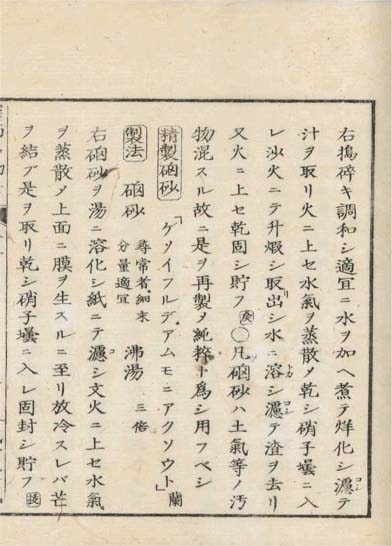 右搗碎キ調和シ適宜ニ水ヲ加ヘ煮テ烊化シ濾テ
汁ヲ取リ火ニ上セ水氣ヲ蒸散メ乾シ硝子壜ニ入
レ沙火ニテ升煅シ取出シ水ニ溶シ濾テ渣ヲ去リ
又火ニ上セ乾固シ貯フ ○凡硇砂ハ土氣等ノ汚
物混スル故ニ是ヲ再製メ純粹ト爲シ用フベシ
精製硇砂 「ゲソイフルデアムモニアクソウト」蘭
製法 硇砂 尋常者細末 分量適宜 沸湯 三倍
右硇砂ヲ湯ニ溶化シ紙ニテ濾シ文火ニ上セ水氣
ヲ蒸散メ上面ニ膜ヲ生スルニ至リ放冷スレバ芒
ヲ結ブ是ヲ取リ乾シ硝子壜ニ入レ固封シ貯フ 扱